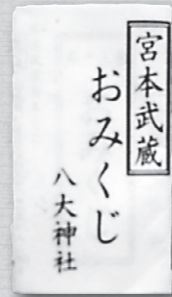 宮本武蔵
おみくじ
八大神社